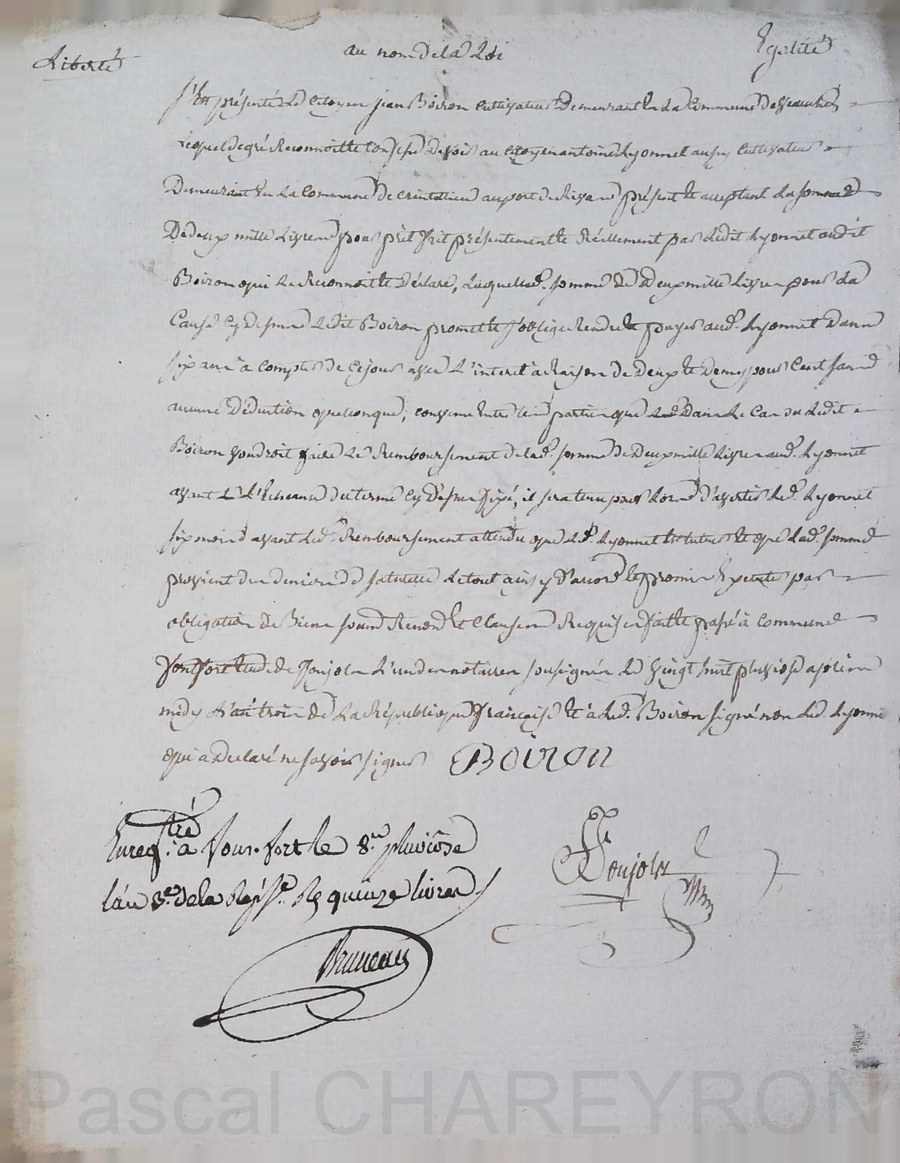 Liberté au nom de la Loi Egalité
S'est présenté Le Citoyen jean Boiron Cultivateur Demeurant En La Commune
Lequel de gré Reconnoitt Devoir au Citoyen antoine Lyonnet aussy Cultivateur
Demeurant En La Commune De au port de présent Et acceptant La somme
De deux mille Livres pour prêt fait présentement Et Réellement par Ledit Lyonnet audit
Boiron qui Le Reconnoitt Et Déclare, Laquelle d. somme De Deux mille Livres pour La
Cause Cy Dessus Ledit Boiron promet Et s'oblige rendre Et payer aud. Lyonnet Dans
six ans à Compter de Ce jour avec L'interet à Raison de Deux Et Demy pour Cent sans
aucune Déduction quelconque, Convenu Entre Les parties que Dans Le Cas ou Ledit
Boiron voudroit faire Le Remboursement de lad. somme De Deux mille Livres aud. Lyonnet
avant L'Echeance du terme Cy Dessus fixé, il sera tenu pour Lors D'avertir Led. Lyonnet
six mois avant Led. Remboursement attendu que Led. Lyonnet Est tuteur Et que Lad. somme
provient des deniers de sa tutelle Le tout ainsy D'acord Et promis Exécuter par
obligation de Biens Renons Et Clauses Requises fait Et passé à Commune
Fontfort Etude de Poujols L'un des notaires soussignés Le vingt huit pluviose après
midy L'an trois De La République française Et à Led. Boiron signé non Led. Lyonnet
qui a Declaré ne savoir signer Boiron
Enreg.tré à Fonfort le 8. pluviôse
l'an 3.e de la Rép. R quinze livres
Poujols
Bruneau
Pascal CHAREYRON